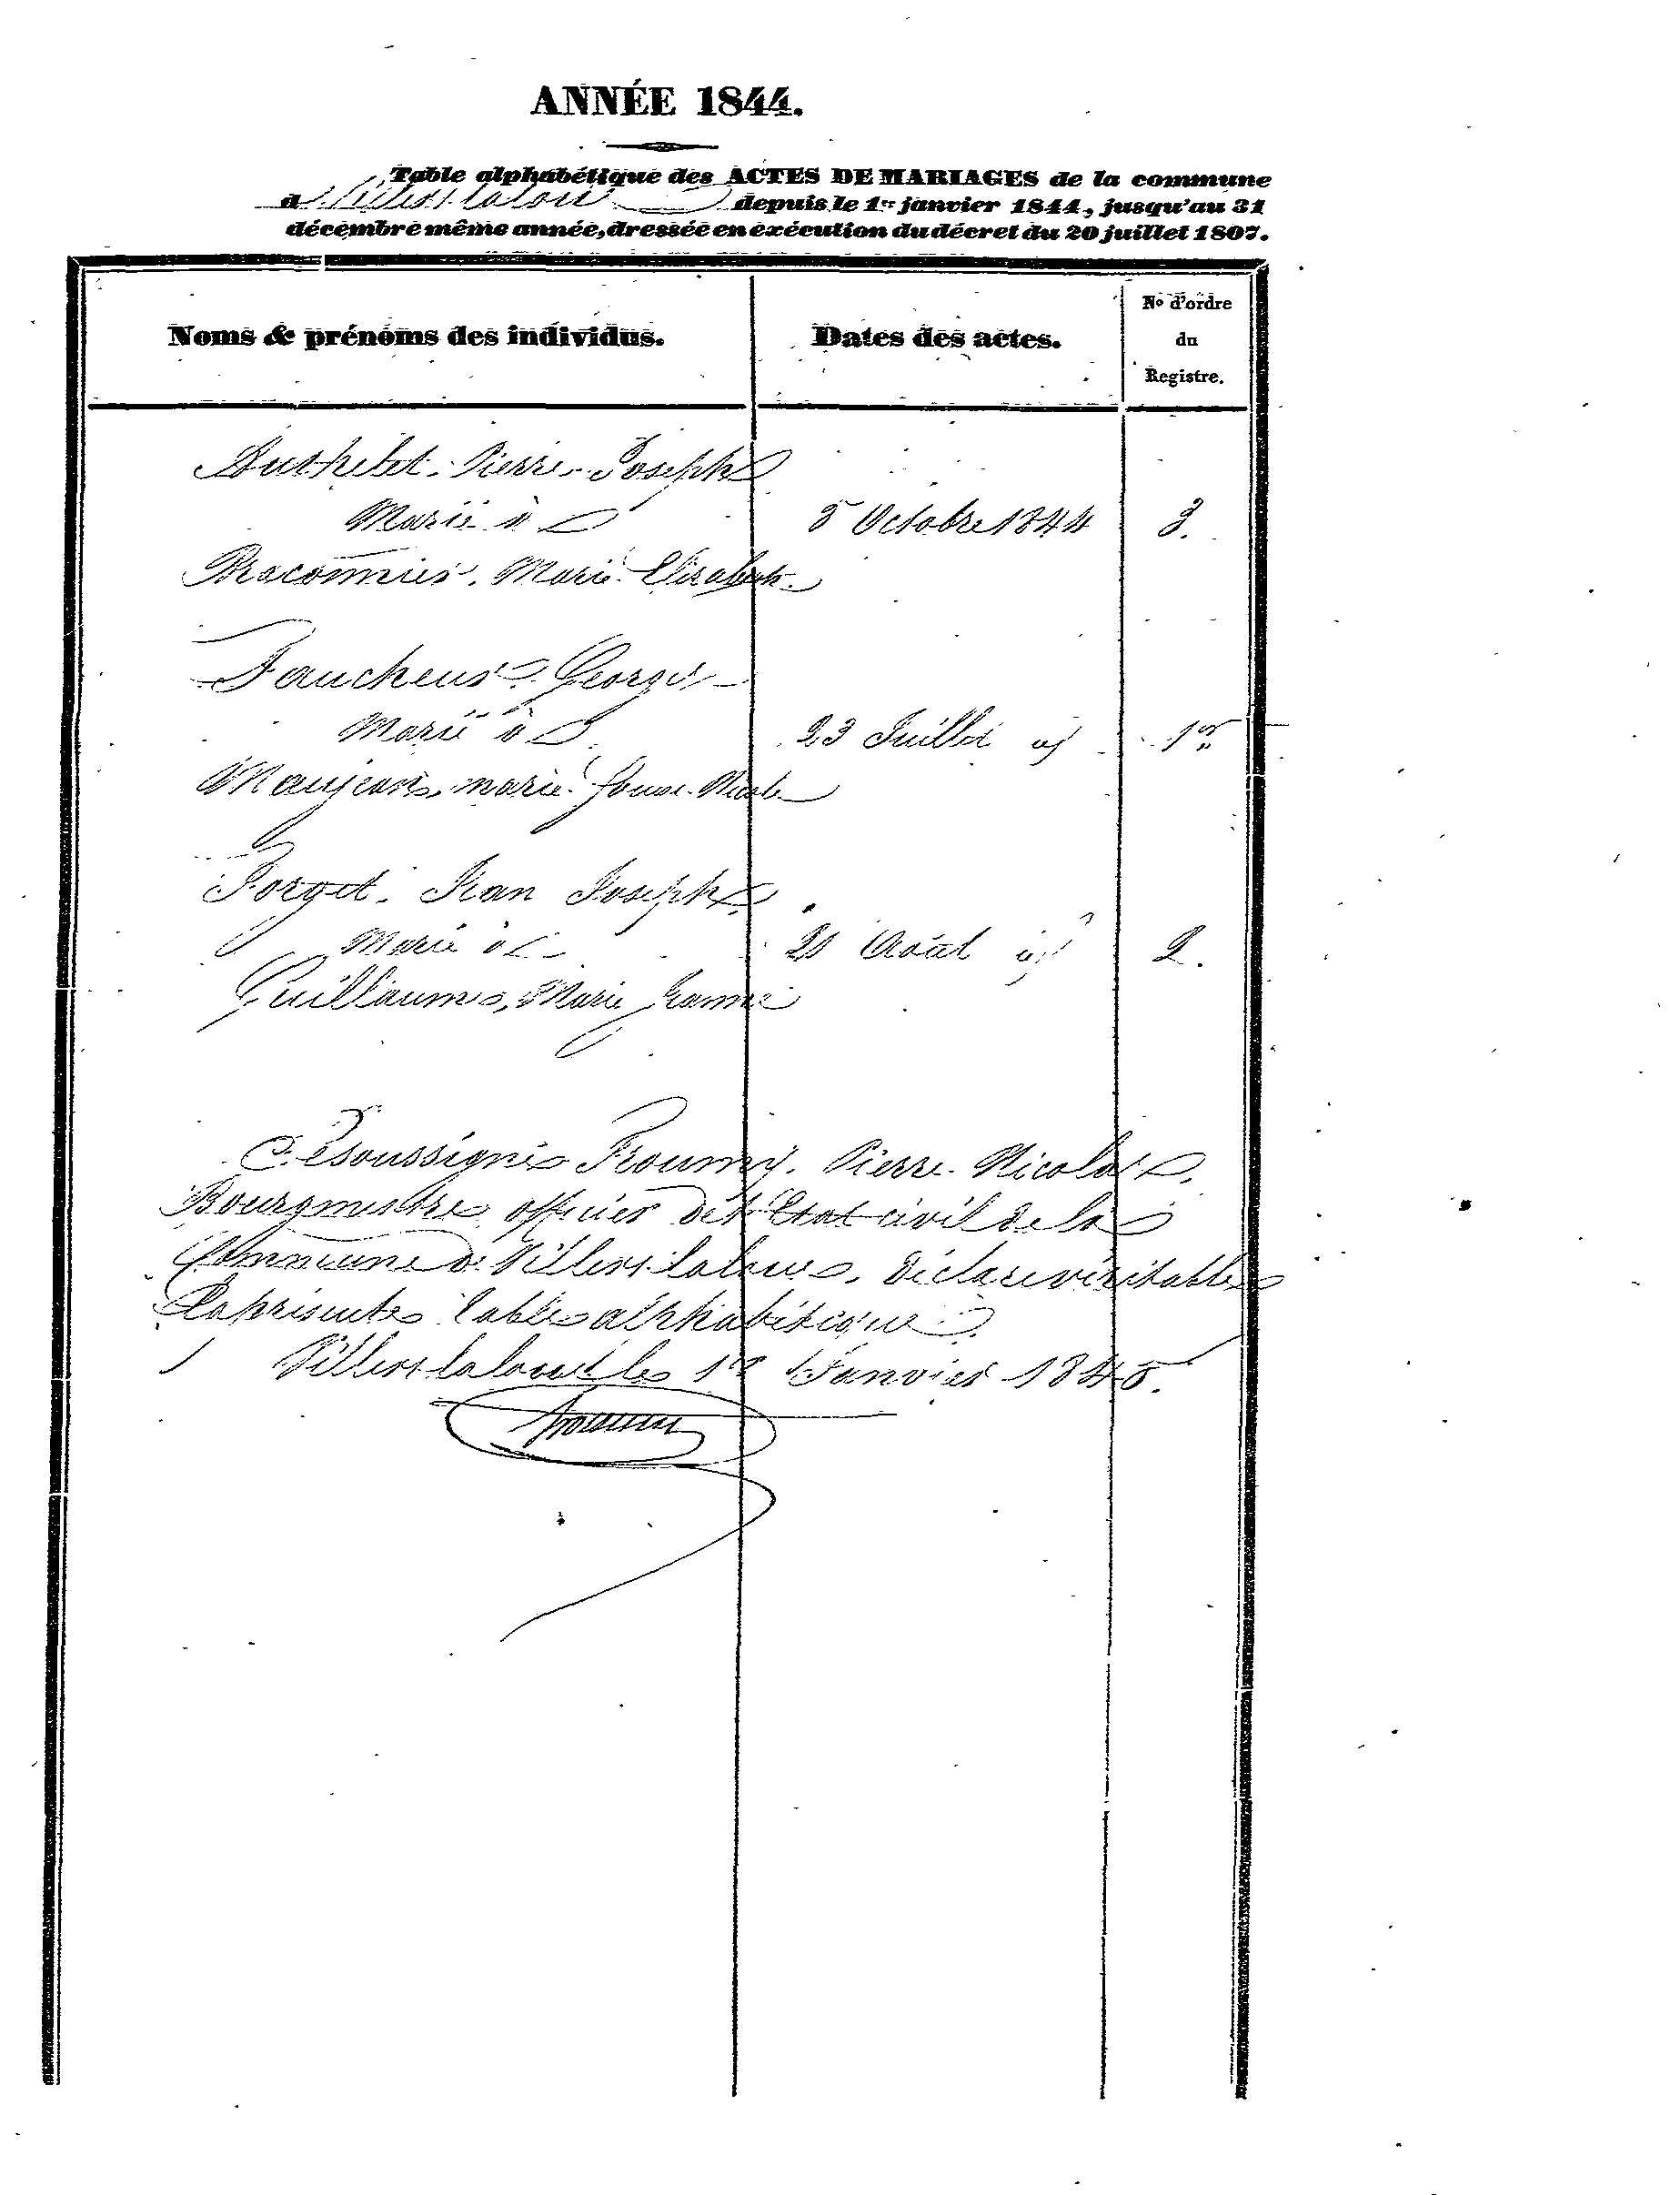 ANNÉE 1844.
Table alphabétique des ACTES DE MARIAGES de la commune
d Villers laloue depuis le 1er janvier 1844, jusqu'au 31
décembre même année, dressée en exécution du décret du 20 juillet 1807.
Noms & prénoms des individus. Dates des actes. No d'ordre
du
Registre.
Pierre Joseph
Marié à 5 Octobre 1844 3.
Braconnier, Marie Elisabeth
Faucheur George
Marié à 23 Juillet id 1er
Maujean, marie Nicole
Forget Jean Joseph
Marié à 21 Août id 2.
Guillaume, Marie Jeanne
Le soussigné Froumy Pierre Nicolas,
Bourgmestre officier de l'Etat civil de la
Commune de Villers laloue, déclare véritable
la présente table alphabétique.
Villers laloue le 1er Janvier 1845.